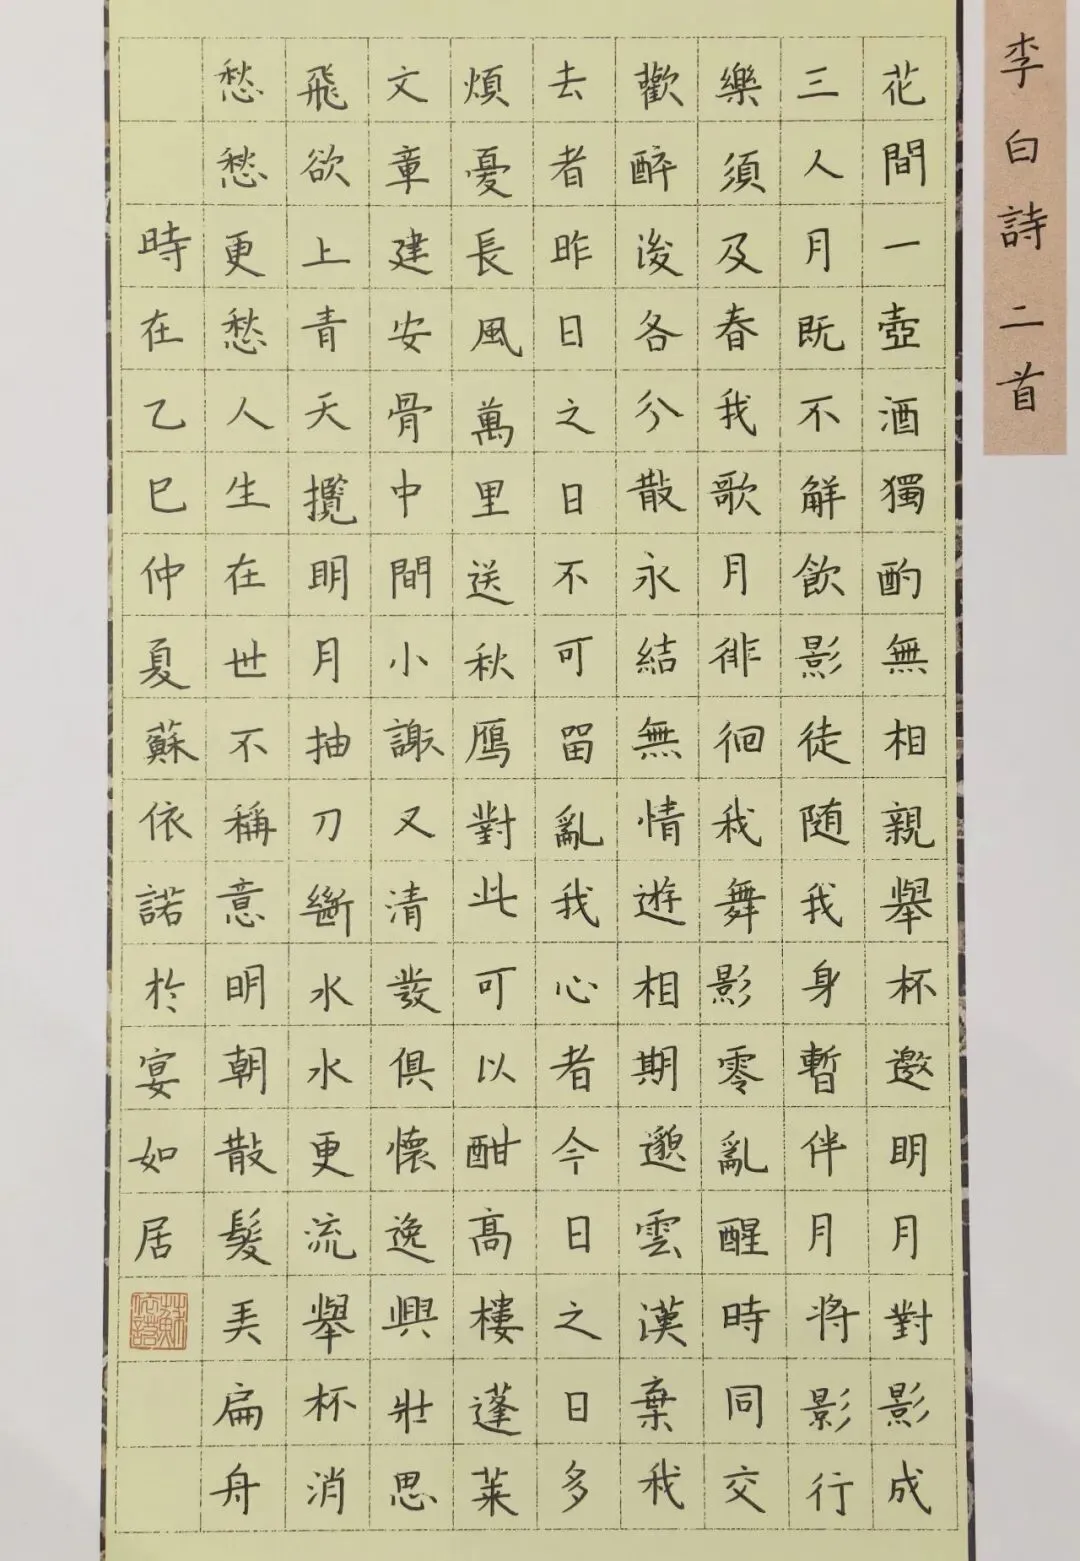 李白詩二首
花間一壺酒獨酌無相親舉杯邀明月對影成
三人月既不解飲影徒随我身暫伴月将影行
樂須及春我歌月徘徊我舞影零亂醒時同交
歡醉後各分散永結無情遊相期邈雲漢棄我
去者昨日之日不可留亂我心者今日之日多
煩憂長風萬里送秋鴈對此可以酣高樓蓬萊
文章建安骨中間小謝又清發俱懷逸興壯思
飛欲上青天攬明月抽刀斷水水更流舉杯消
愁愁更愁人生在世不稱意明朝散髮弄扁舟
時在乙巳仲夏蘇依諾於宴如居
蘇依諾